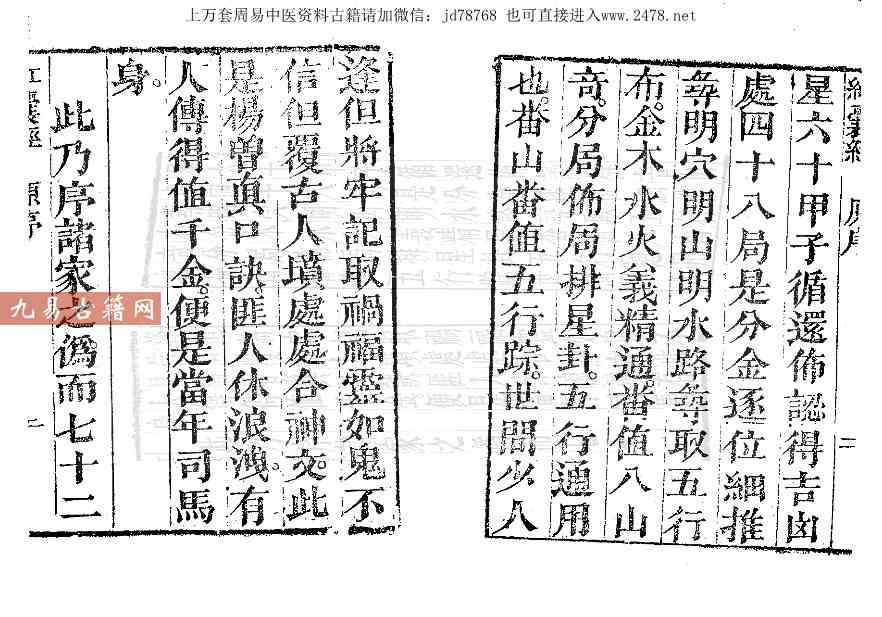 上万套周易中医资料古籍请加微信：jd78768 也可直接进入www.2478.net
星六十甲子循還佈認得吉凶
處四十八局是分金逐位細推
尋明穴明山明水路尋取五行
布。金木水火義精通。番值八山
奇。分局佈局排星卦。五行通用
也。番山番值五行踪。世間少人
逢但將牢記取禍福靈如鬼不
信但覆古人墳處處合神交。此
是楊曾真口訣。匪人休浪洩。有
人傳得值千金。便是當年司馬
身。
此乃序諸家之僞而七十二
原序
二
九易古籍网